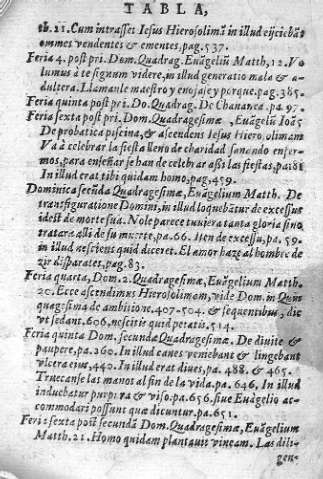 TABLA,
th. 21. Cum intrasset Iesus Hierosolimã in illud eijciebãt
ommes vendentes & ementes, pag. 537.
Feria 4. post pri. Dom. Quadrag. Euãgeliũ Matth, 12. Vo
lumus à te signum videre, in illud generatio mala & a-
dultera. Llamanle maestro y enojase y porque. pag. 385.
Feria quinta post pri. Do. Quadrag. De Chananea. pa. 97.
Feria sexta post pri. Dom. Quadragesimæ, Euãgeliũ Ioãs
De probatica piscina, & ascendens Iesus Hiero,olimam
Va à celebrar la fiesta lleno de charidad sanando enfer-
mos, para enseñar se han de celebrar assi las fiestas, pa181
In illud erat tibi quidam homo, pag, 459.
Dominica secũda Quadragesimæ, Euãgelium Matth. De
transfiguratione Domini, in illud loquebãtur de excessus
idest de morte sua. No le parece tuuiera tanta gloria sino
tratara alli de su muerte, pa. 66. Iten de excessu, pa. 59.
in illud nesciens quid diceret. El amor haze al hombre de
zir disparates, pag. 83.
Feria quarta, Dom. 2. Quadragesimæ, Euãgelium Matth.
20. Ecce ascendimus Hierosolimam, vide Dom. in Quin
quagesima de ambitione. 407-504. & sequentibus, dic
vt sedant. 606, nescitis quid petatis. 514.
Feria quinta Dom. secundæ Quadragesimæ. De diuite &
paupere, pa. 260. In illud canes veniebant & lingebant
vlcera eius, 440. In illud erat diues, pa. 488. & 465.
Truecanse las manos al fin de la vida. pa. 646, In illud
induebatur purpura & viso. pa. 656. siue Euãgelio ac-
commodari possunt quæ dicuntur. pa. 651.
Feria sexta post secundã Dom. Quadragesimæ, Euãgelium
Matth. 21. Homo quidam plantauit vineam. Las dili-
gen-